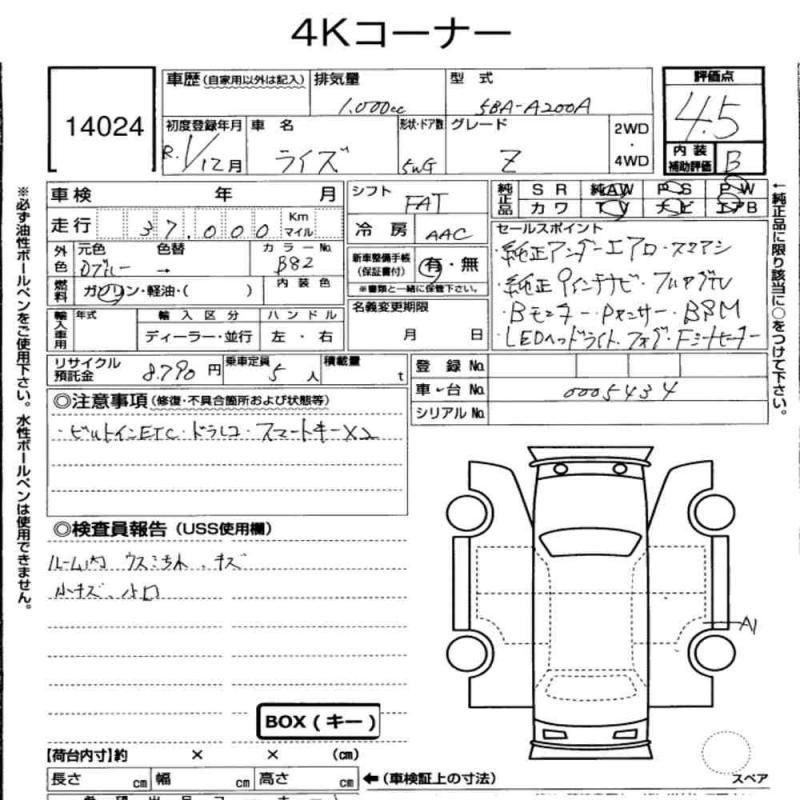 4Kコーナー
14024
車歴（自家用以外は記入） 排気量 1.000cc 型式 5BA-A200A
評価点 4.5
初度登録年月 R.1/12月 車名 ライズ 形状・ドア数 5WG グレード Z 2WD・4WD
内装補助評価 B
車検 年 月 シフト FAT 純正品 SR 純AW PS PW
カワ TV ナビ エアB
走行 37.000 Km マイル 冷房 AAC
外色 元色 Dブルー 色替 → カラーNo. B82
燃料 ガソリン・軽油・（ ） 内装色
新車整備手帳（保証書付） 有・無
※書類と一緒に保管下さい。
輸入車用 年式 輸入区分 ディーラー・並行 ハンドル 左・右
名義変更期限 月 日
セールスポイント
・純正アンダーエアロ・スマアシ
・純正9インチナビ・フルセグTV
・Bモニター・Pセンサー・BSM
・LEDヘッドライト・フォグ・Fシートヒーター
リサイクル預託金 8.790円 乗車定員 5人 積載量 t
登録No.
車台No. 0005434
シリアルNo.
◎注意事項（修復・不具合箇所および状態等）
・ビルトインETC・ドラレコ・スマートキー×2
◎検査員報告（USS使用欄）
ルーム内 ウスゴチレ、キズ
小キズ、凹
A1
BOX（キー）
【荷台内寸】約 × × （cm）
長さ cm 幅 cm 高さ cm ←（車検証上の寸法）
スペア
※必ず油性ボールペンをご使用下さい。水性ボールペンは使用できません。
←純正品に限り該当に○をつけて下さい。